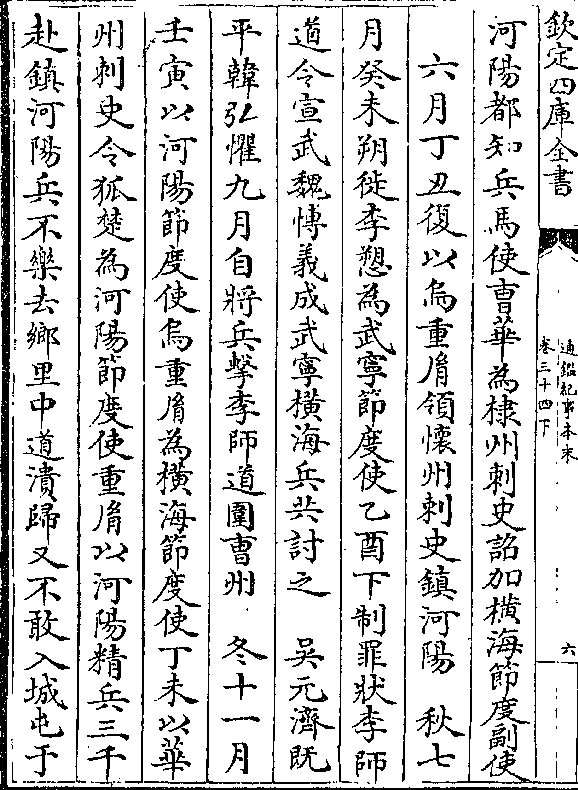 欽定四庫全書
通鑑紀事本末
卷三十四下
六
河陽都知兵馬使曹華為棣州刺史詔加橫海節度副使
六月丁丑復以烏重𦙍領懷州刺史鎮河陽　秋七
月癸未朔徙李愬為武寧節度使乙酉下制罪狀李師
道令宣武魏博義成武寧橫海兵共討之　吳元濟既
平韓弘懼九月自將兵擊李師道圍曹州　冬十一月
壬寅以河陽節度使烏重𦙍為橫海節度使丁未以華
州刺史令狐楚為河陽節度使重𦙍以河陽精兵三千
赴鎮河陽兵不樂去鄉里中道潰歸又不敢入城屯于